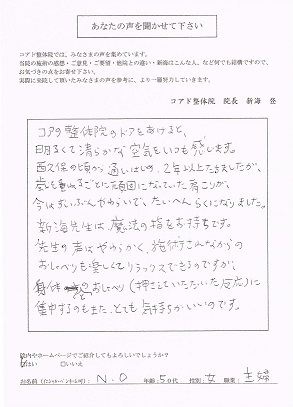 あなたの声を聞かせて下さい
コアド整体院では、みなさまの声を集めています。
当院の施術の感想・ご意見・ご要望・他院との違い・新海はこんな人、など何でも結構ですので、
お気づきの点をお寄せ下さい。
実際に来院して頂いたみなさまの声を参考に、より一層努力していきます。
コアド整体院 院長 新海 登
コアドの整体院のドアをあけると、
明るくて清らかな空気をいつも感じます。
西久保の頃から通いはじめ、2年以上たちましたが、
歳を重ねるごとに頑固になっていた肩こりが、
今はずいぶんやわらいで、たいへんらくになりました。
新海先生は、魔法の指をお持ちです。
先生の声はやわらかく、施術されながらの
おしゃべりも楽しくてリラックスできるのですが、
身体おしゃべり(押していただいた反応)に
集中するのもまた、とても気持ちがいいです。
院内やホームページでご紹介してもよろしいでしょうか?
はい いいえ
お名前(イニシャル・ペンネーム可): N.O 年齢:50代 性別:女 職業:主婦